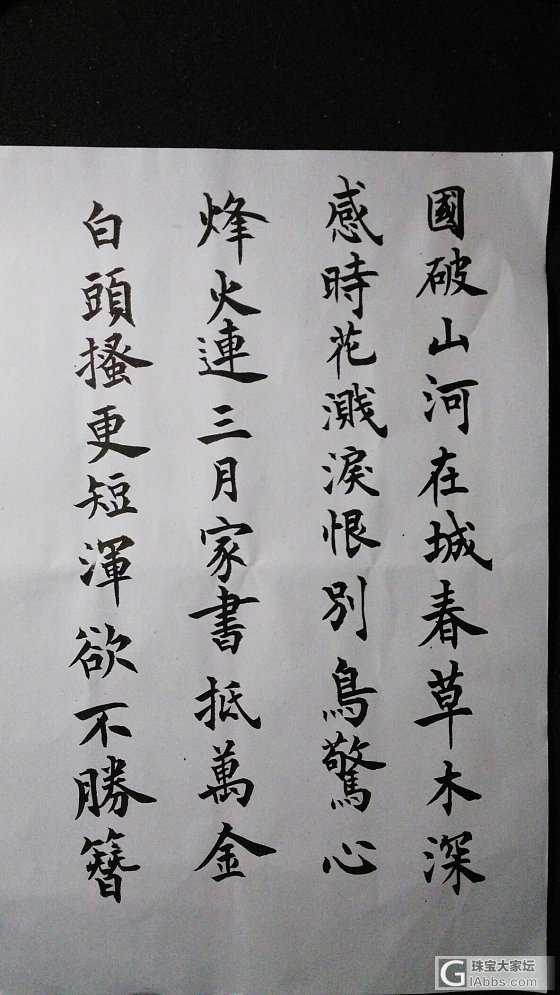 國破山河在城春草木深
感時花濺淚恨別鳥驚心
烽火連三月家書抵萬金
白頭搔更短渾欲不勝簪
珠宝大家坛
GIAbbs.com